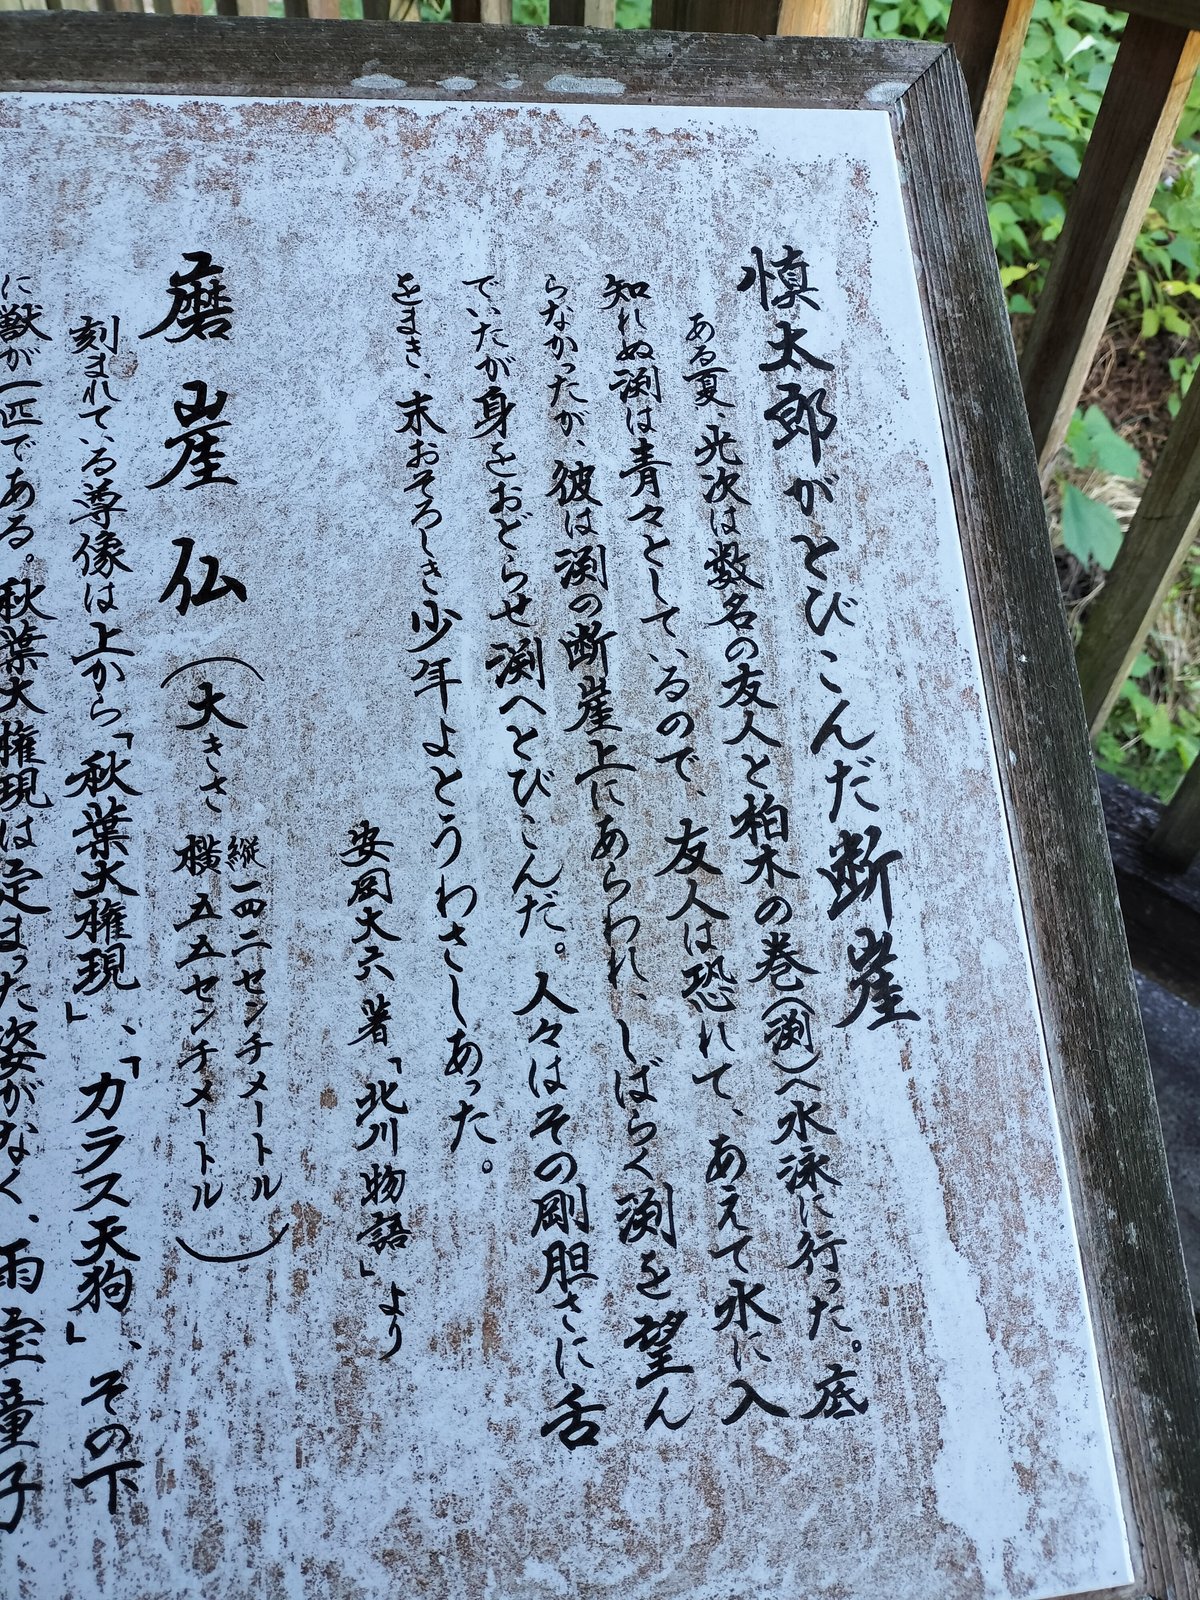 慎太郎がとびこんだ断崖
ある夏、光次は数名の友人と柏木の巻(渕)へ水泳に行った。底
知れぬ渕は青々としているので、友人は恐れて、あえて水に入
らなかったが、彼は渕の断崖上にあらわれ、しばらく渕を望ん
でいたが身をおどらせ渕へとびこんだ。人々はその剛胆さに舌
をまき、末おそろしき少年よとうわさしあった。
安岡大六著「北川物語」より
磨崖仏(大きさ 縦一四二センチメートル
横五五センチメートル)
刻まれている尊像は上から「秋葉大権現」、「カラス天狗」、その下
に獣が一匹である。秋葉大権現は定まった姿がなく、雨宝童子